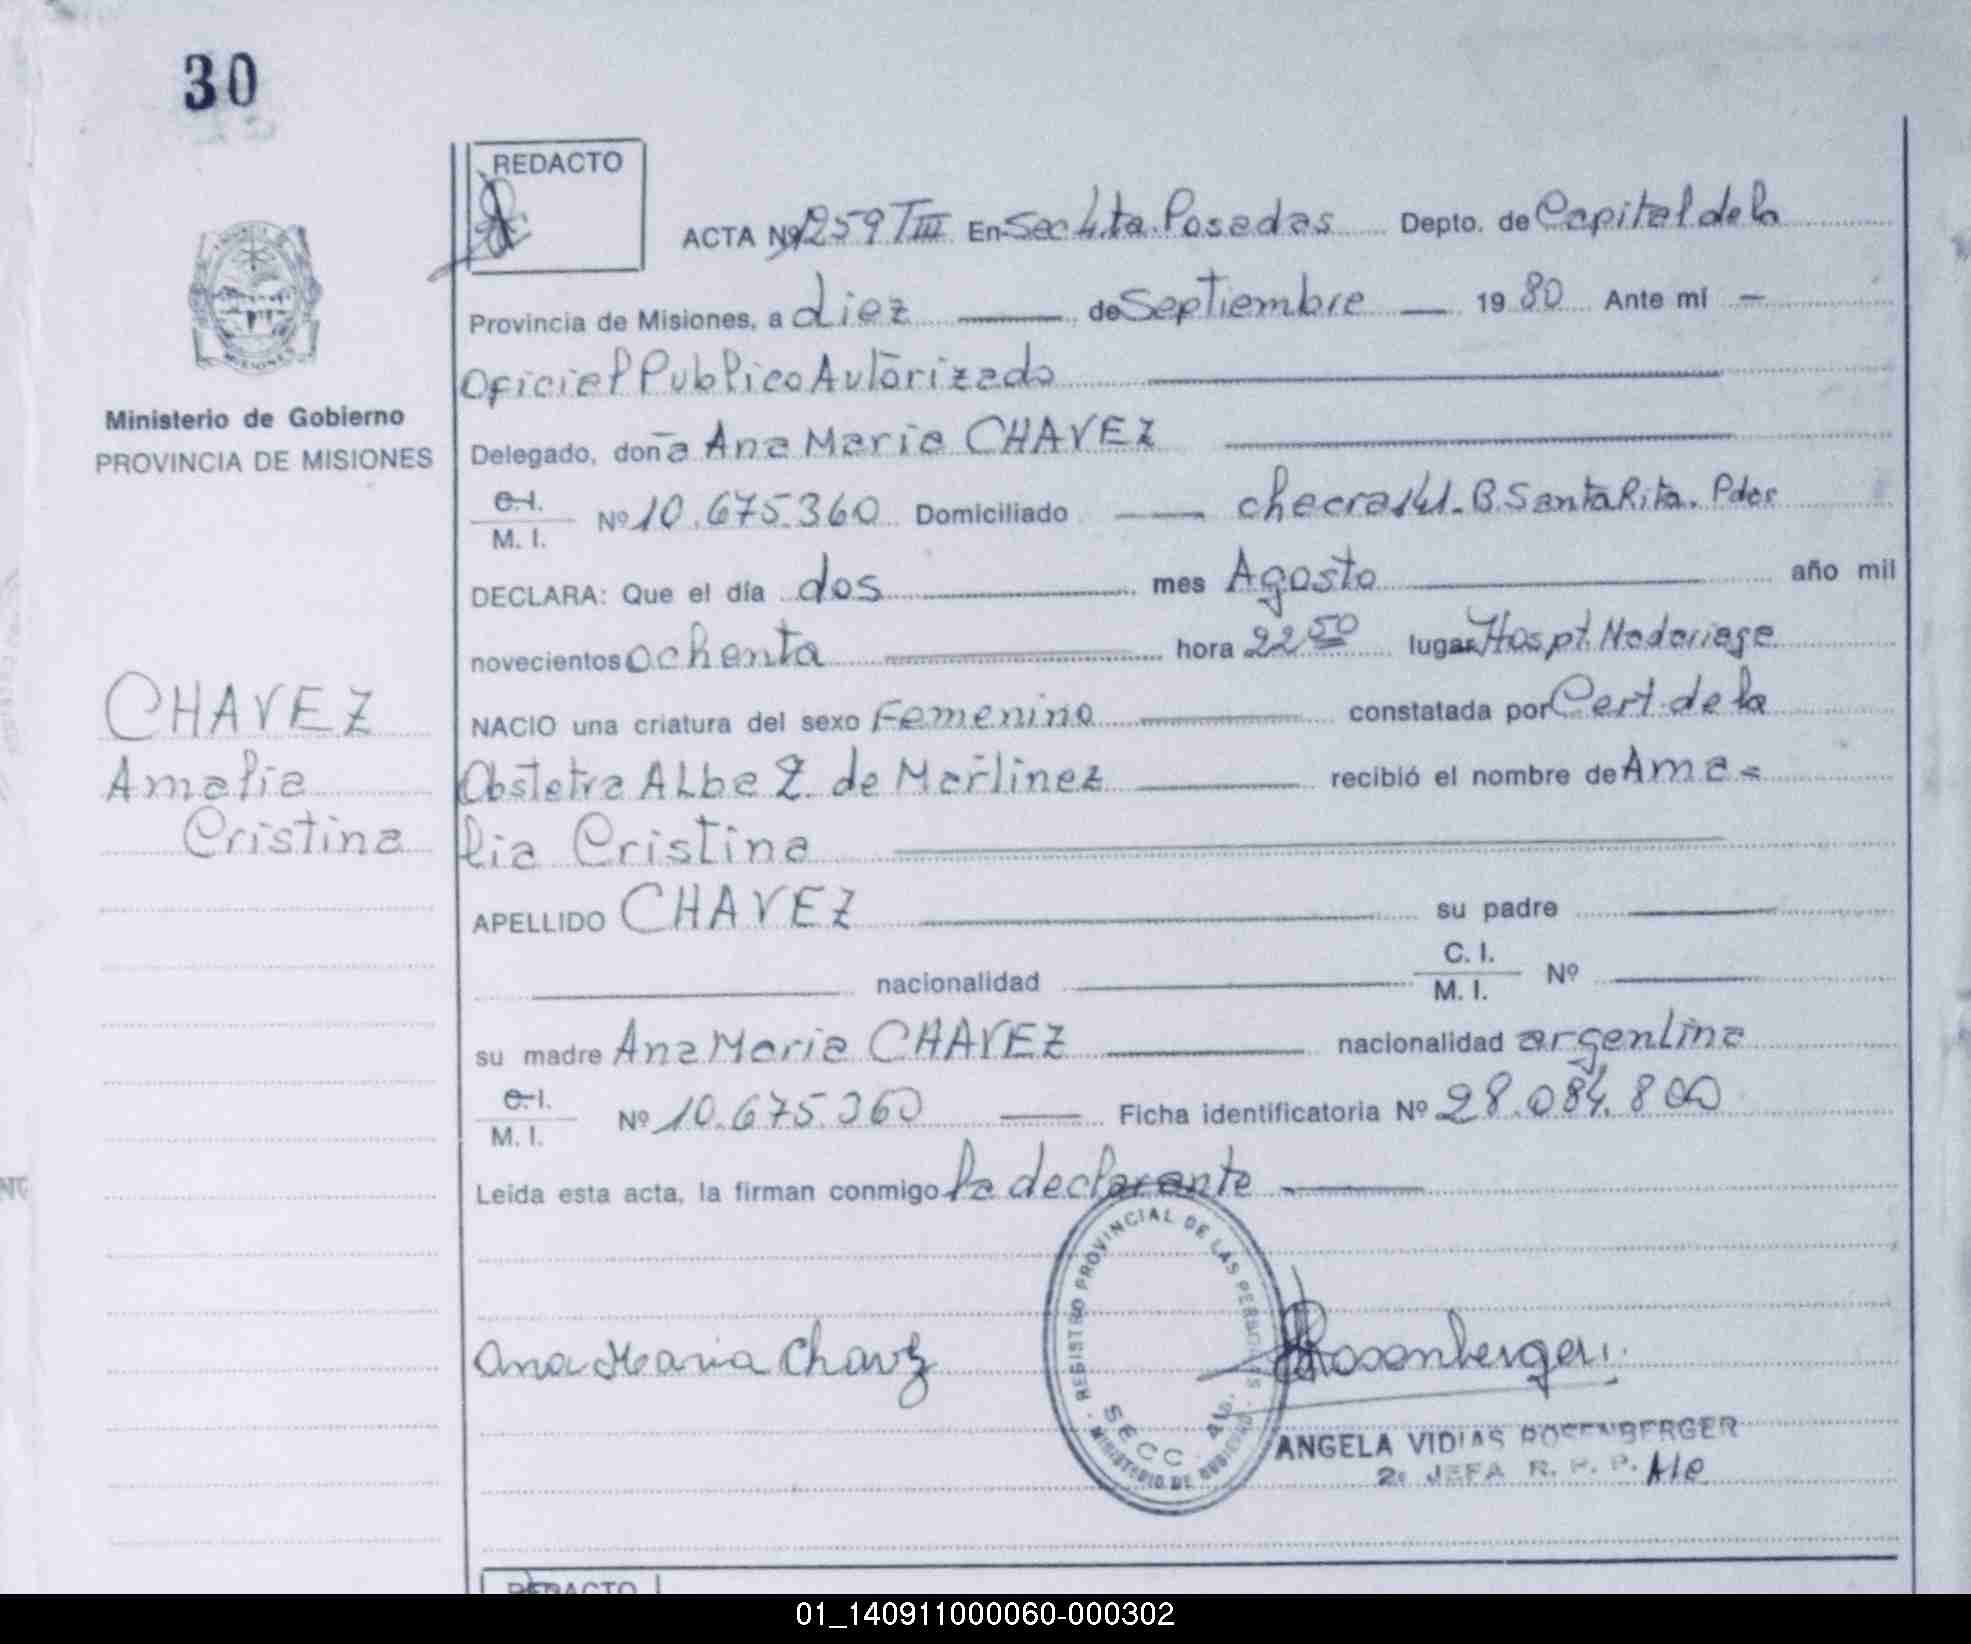 30
REDACTO
ACTA Nº 1259 TIII En Sec 4.ta. Posadas Depto. de Capital de la
Provincia de Misiones, a diez de Septiembre 19 80 Ante mi
Oficial Publico Autorizado
Ministerio de Gobierno
PROVINCIA DE MISIONES
Delegado, doña Ana Maria CHAVEZ
C.I.
M. I. Nº 10.675.360 Domiciliado checra 141. B. Santa Rita. Pdas
DECLARA: Que el día dos mes Agosto año mil
novecientos ochenta hora 22 50 lugar Hospt. Madariaga
CHAVEZ
Amalia
Cristina
NACIO una criatura del sexo Femenino constatada por Cert. de la
Obstetra ALba Z. de Martinez recibió el nombre de Ama=
lia Cristina
APELLIDO CHAVEZ su padre
nacionalidad C. I.
M. I. Nº
su madre Ana Maria CHAVEZ nacionalidad argentina
C.I.
M. I. Nº 10.675.360 Ficha identificatoria Nº 28.084.800
Leída esta acta, la firman conmigo la declarante
REGISTRO PROVINCIAL DE LAS PERSONAS
SECC. 4ta.
MINISTERIO DE GOBIERNO
Ana Maria Chavez
Rosenberger
ANGELA VIDIAS ROSENBERGER
2ª JEFA R. P. P. Alc
REDACTO
01_140911000060-000302